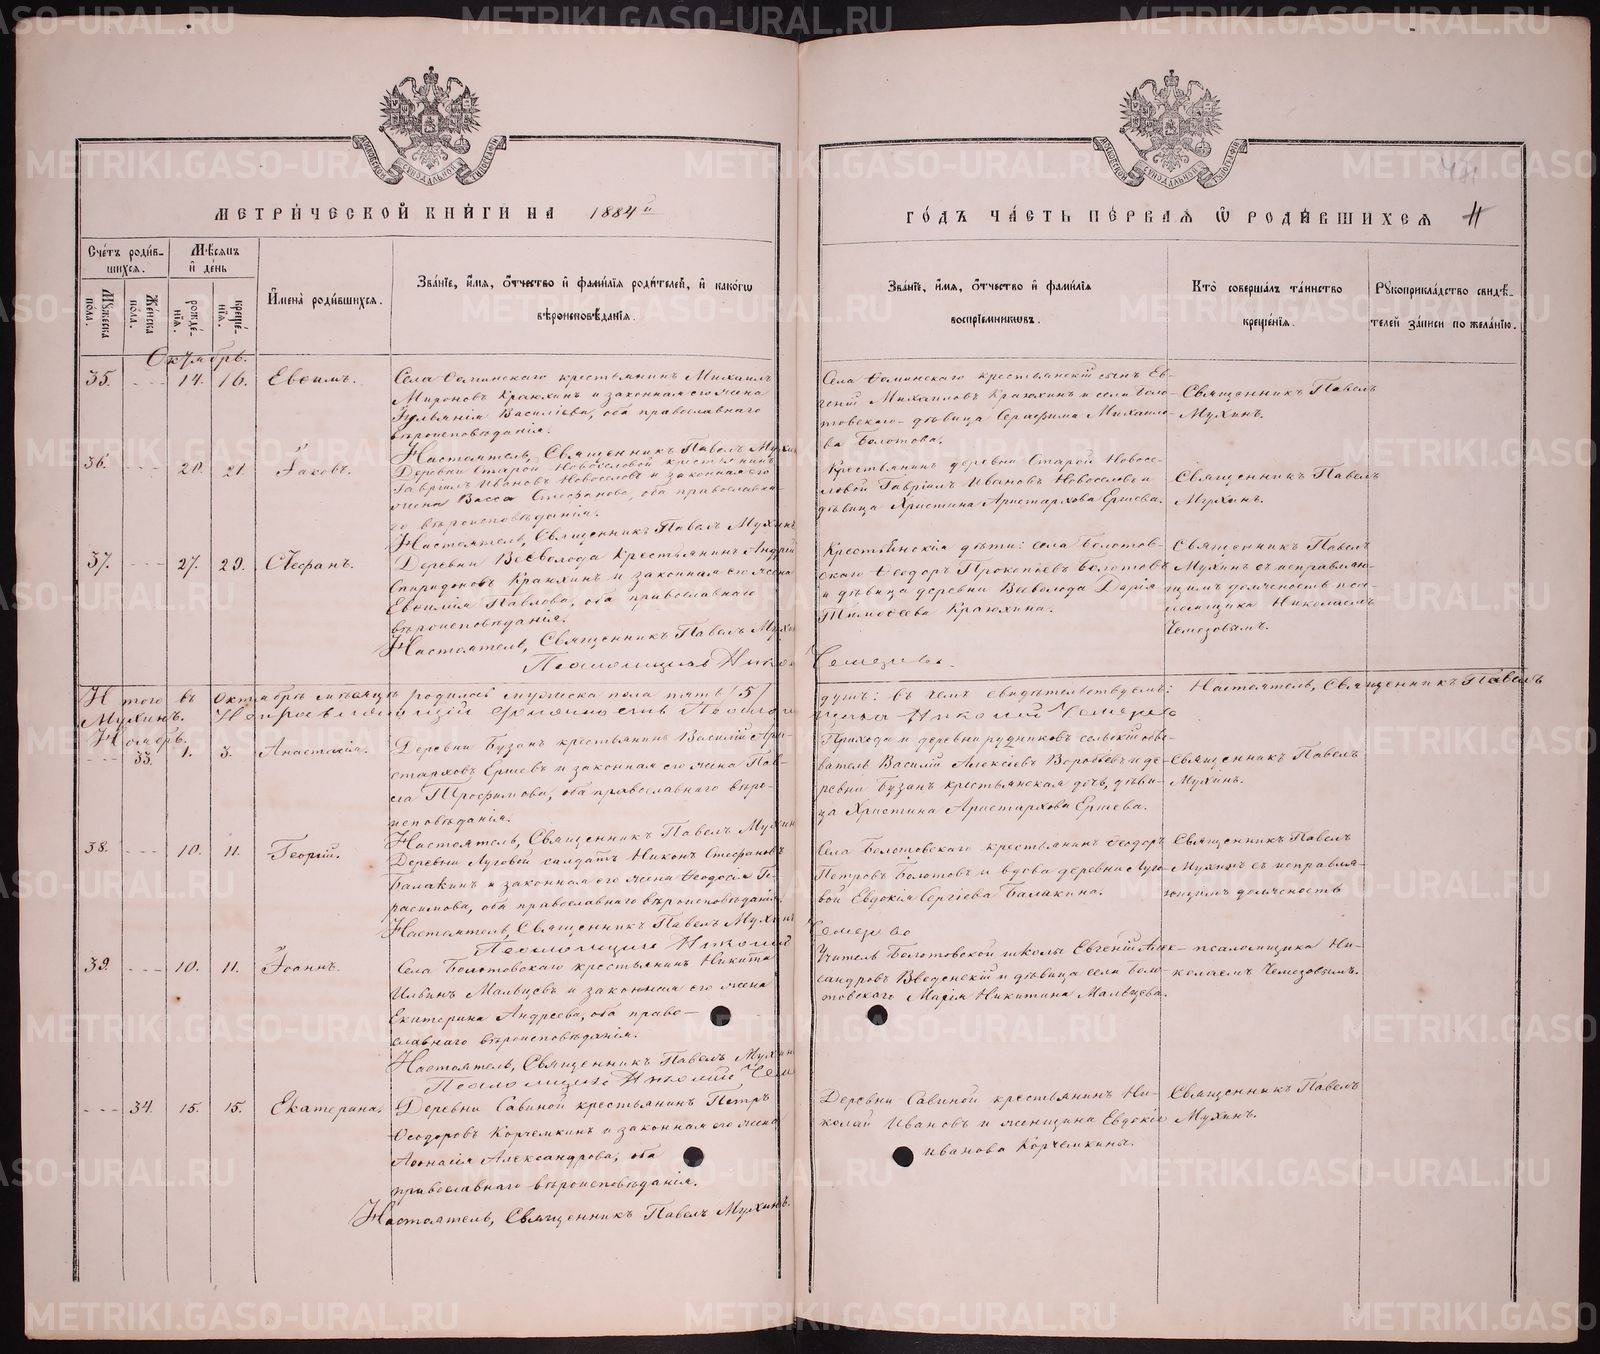 МЕТРИ́ЧЕСКОЙ КНИ́ГИ НА 1884й
ГО́ДЪ ЧА́СТЬ ПЕ́РВАЯ Ѿ РОДИ́ВШИХСЯ
Сче́тъ роди́в-
шихся.
Мѣ́сяцъ
и҆ де́нь
Му́жеска
пола.
Же́нска
пола.
рожде́-
нія.
креще́-
нія.
И҆мена̀ роди́вшихся.
Зва́ніе, и҆́мя, ѻ҆́тчество и҆ фами́лія роди́телей, и҆ како́гѡ
вѣроисповѣ́данія.
Зва́ніе, и҆́мя, ѻ҆́тчество и҆ фами́лія
воспріе́мниковъ.
Кто̀ соверша́лъ та́инство
креще́нія.
Рꙋкоприкла́дство свидѣ́-
телей за́писи по жела́нію.
Октябрь.
35. 14. 16. Евѳимъ.
Села Ѳоминскаго крестьянинъ Михаилъ
Мироновъ Краюхинъ и законная его жена
Василіева, оба православнаго
вѣроисповѣданія.
Настоятель, Священникъ Павелъ
Села Ѳоминскаго крестьянскій сынъ Ев-
геній Михаиловъ Краюхинъ и села Боло-
товскаго дѣвица Серафима Михаило-
ва Болотова.
Священникъ Павелъ
Мухинъ.
36. 20. 21. Іаковъ.
Деревни Старой Новоселовой крестьянинъ
Гавріилъ Ивановъ Новоселовъ и законная его
жена Васса Стефанова, оба православна-
го вѣроисповѣданія.
Настоятель, Священникъ Павелъ Мухинъ
Крестьянинъ деревни Старой Новосе-
ловой Гавріилъ Ивановъ Новоселовъ и
дѣвица Христина Аристархова Ершева.
Священникъ Павелъ
Мухинъ.
37. 27. 29. Стефанъ.
Деревни Всеволода крестьянинъ Андрей
Спиридоновъ Краюхинъ и законная его жена
Евѳимія Павлова, оба православнаго
вѣроисповѣданія.
Настоятель, Священникъ Павелъ
Псаломщикъ
Крестьянскія дѣти: села Болотов-
скаго Ѳеодоръ Прокопьевъ Болотовъ
и дѣвица деревни Всеволода Дарія
Тимоѳеева Краюхина.
Священникъ Павелъ
Мухинъ съ исправляю-
щимъ должность пса-
ломщика Николаемъ
Чемезовымъ.
Итого въ Октябрѣ мѣсяцѣ родилось мужеска пола пять /5/
душъ: въ чемъ свидѣтельствуемъ: Настоятель, Священникъ Павелъ
Мухинъ.
Ноябрь.
33. 1. 3. Анастасія.
Деревни Бузанъ крестьянинъ Василій Ари-
старховъ Ершевъ и законная его жена
Трофимова, оба православнаго вѣро-
исповѣданія.
Настоятель, Священникъ Павелъ Мухинъ
Прихода и деревни рудниковъ сельскій обы-
ватель Василій Алексіевъ Воробьевъ и де-
ревни Бузанъ крестьянская дочь, дѣви-
ца Христина Аристархова Ершева.
Священникъ Павелъ
Мухинъ.
38. 10. 11. Георгій.
Деревни Луговой солдатъ Никонъ Стефановъ
Балакинъ и законная его жена Ѳеодосія Ге-
расимова, оба православнаго вѣроисповѣданія.
Настоятель, Священникъ Павелъ Мухинъ
Псаломщикъ Николай
Села Болотовскаго крестьянинъ Ѳеодоръ
Петровъ Болотовъ и вдова деревни Луго-
вой Евдокія Сергіева Балакина.
Священникъ Павелъ
Мухинъ съ исправля-
ющимъ должность
39. 10. 11. Іоаннъ.
Села Болотовскаго крестьянинъ Никита
Ильинъ Мальцевъ и законная его жена
Екатерина Андреева, оба право-
славнаго вѣроисповѣданія.
Настоятель, Священникъ Павелъ Мухинъ
Учитель Болотовской школы Евгеній Алек-
сандровъ Введенскій и дѣвица села Боло-
товскаго Марія Никитина Мальцева.
псаломщика Ни-
колаемъ Чемезовымъ.
34. 15. 15. Екатерина.
Деревни Савиной крестьянинъ Петръ
Ѳеодоровъ Корчемкинъ и законная его жена
Аѳанасія Александрова, оба
православнаго вѣроисповѣданія.
Настоятель, Священникъ Павелъ Мухинъ.
Деревни Савиной крестьянинъ Ни-
колай Ивановъ и женщина Евдокія
Иванова Корчемкины.
Священникъ Павелъ
Мухинъ.
METRIKI.GASO-URAL.RU